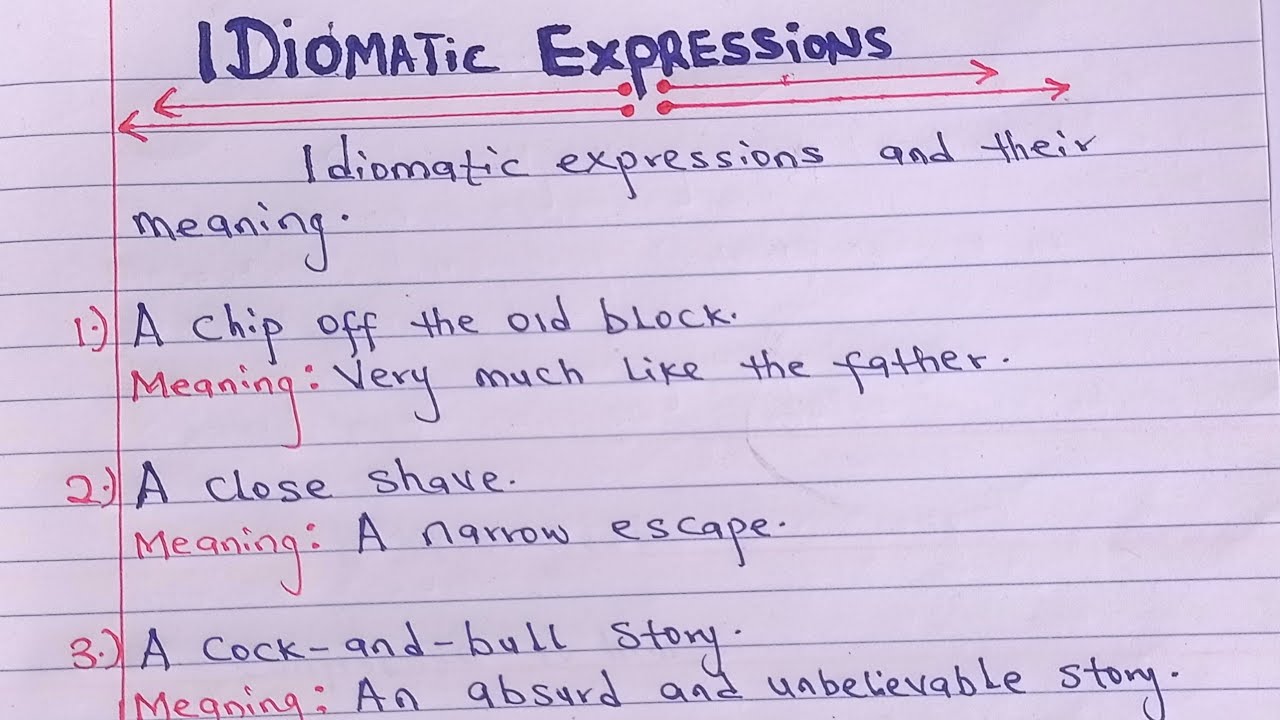 IDiOMATic ExpRESSiONS
Idiomatic expressions and their
meaning.
1.) A chip off the old block.
Meaning: Very much like the father.
2.) A close shave.
Meaning: A narrow escape.
3.) A cock-and-bull story.
Meaning: An absurd and unbelievable story.